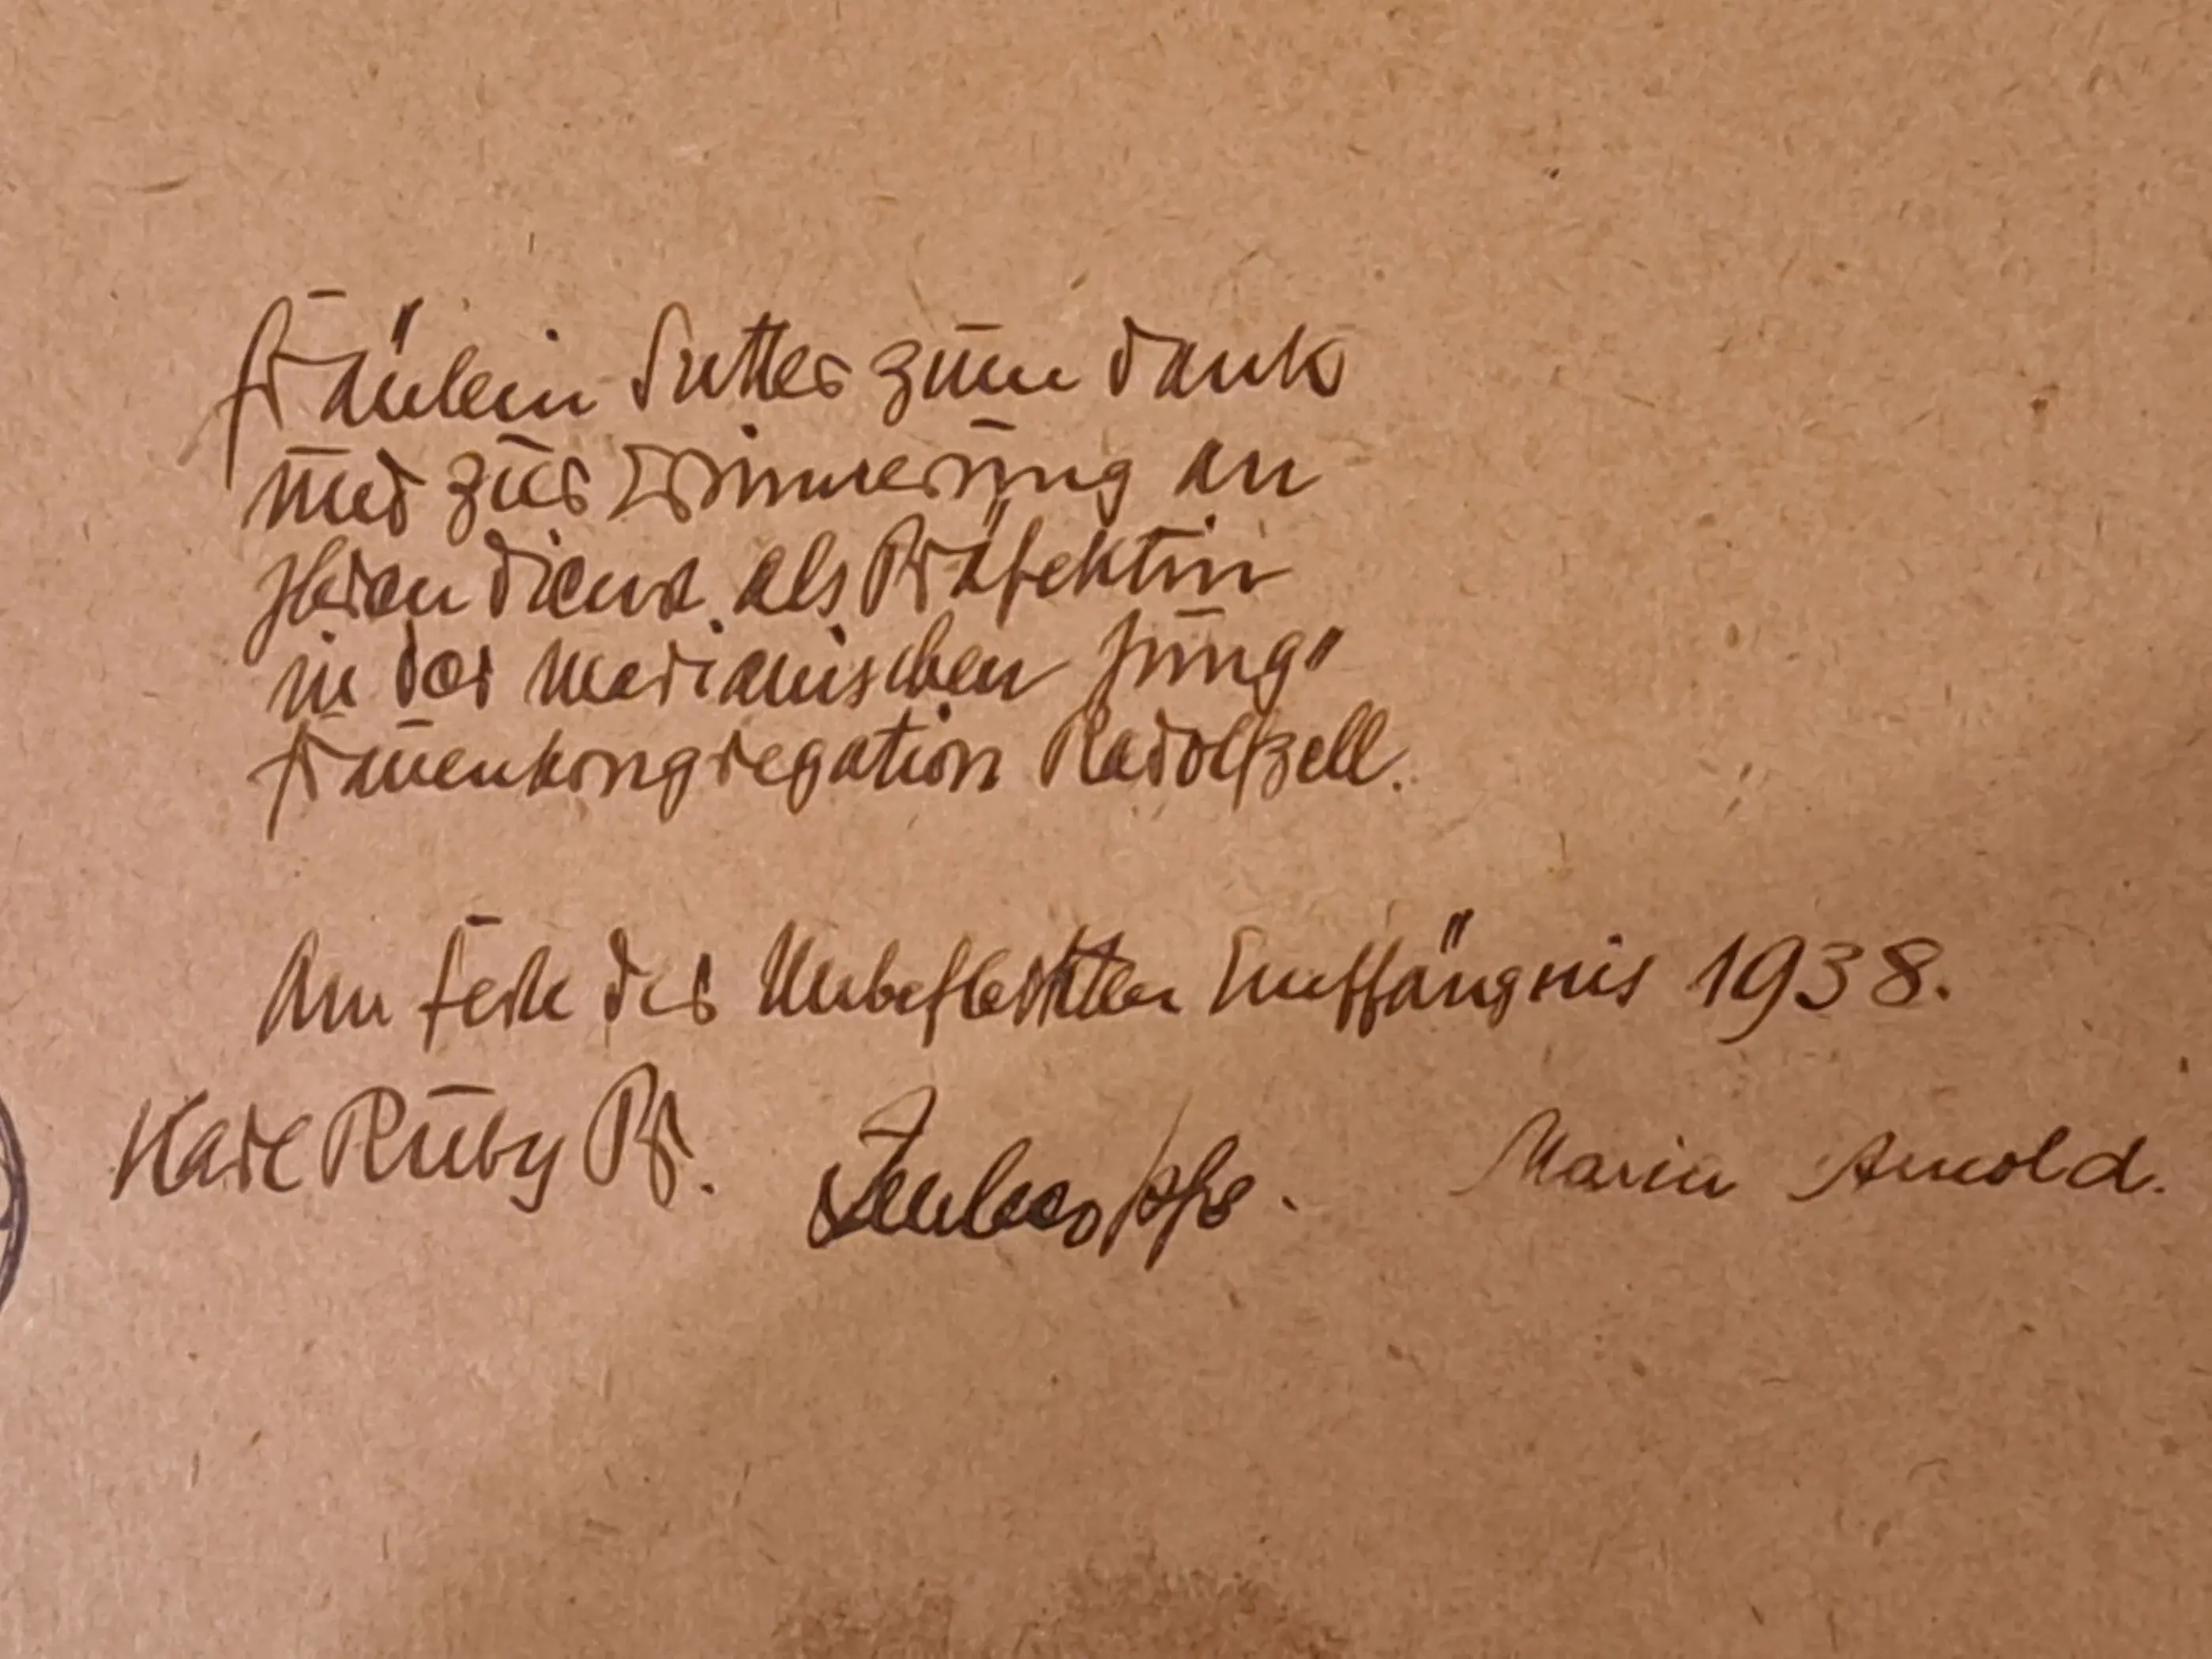 Fräulein Sutter zum Dank
und zur Erinnerung an
Ihren Dienst als Präfektin
in der Marianischen Jung"
frauenkongregation Radolfzell.
Am Feste der Unbefleckten Empfängnis 1938.
Karl Ruby Pr. Maria Arnold.